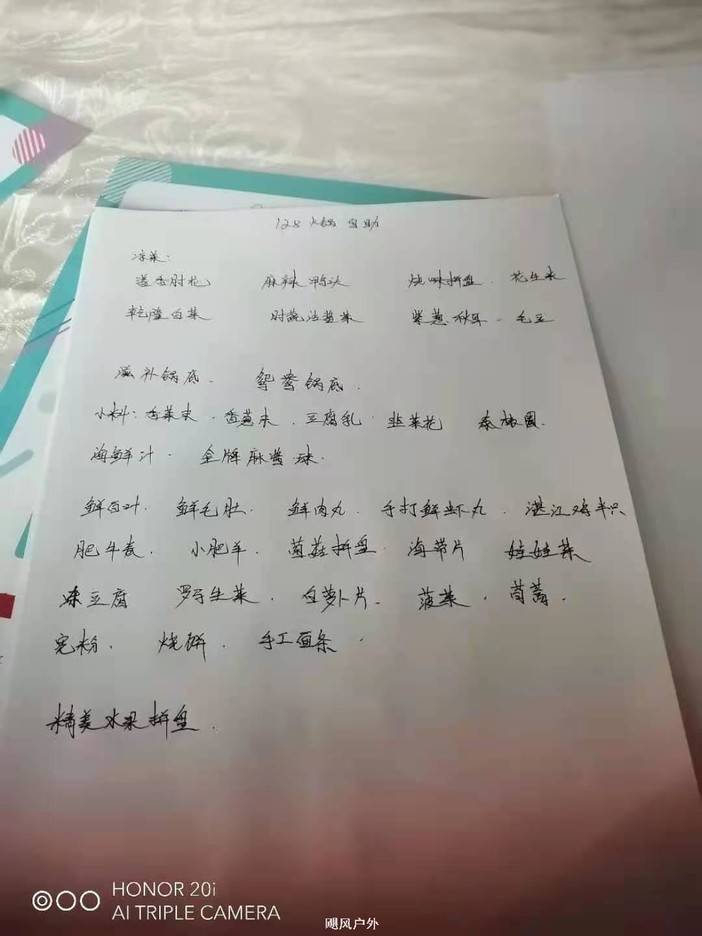 128 火锅 自助
凉菜:
酱香肘花 麻辣鸭头 烧味拼盘. 花生米
乾隆白菜 时蔬沾酱菜 紫葱秋耳. 毛豆
滋补锅底. 鸳鸯锅底.
小料: 香菜末. 香葱末. 豆腐乳. 韭菜花 辣椒圈.
海鲜汁. 金牌麻酱球.
鲜百叶. 鲜毛肚. 鲜肉丸. 手打鲜虾丸. 湛江鸡半只
肥牛卷. 小肥羊. 菌菇拼盘. 海带片 娃娃菜
冻豆腐 罗马生菜. 白萝卜片. 菠菜. 茼蒿.
宽粉. 烧饼. 手工面条.
精美水果拼盘.
HONOR 20i
AI TRIPLE CAMERA
飓风户外